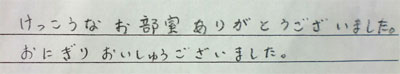 けっこうな お部室 ありがとうございました。
おにぎり おいしゅうございました。